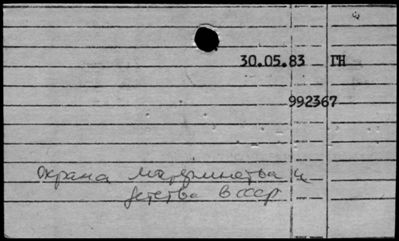 30.05.83 ГН
992367
Охрана материнства и
детства в СССР